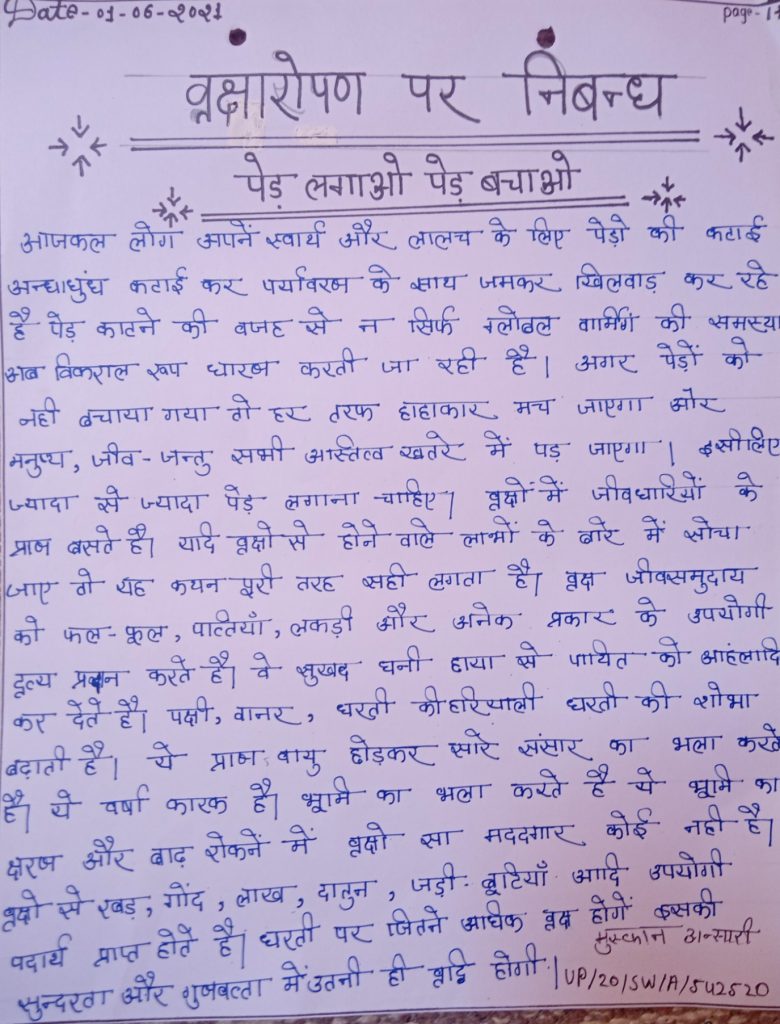 Date-01-06-2021
page-11
वृक्षारोपण पर निबन्ध
पेड़ लगाओ पेड़ बचाओ
आजकल लोग अपनें स्वार्थ और लालच के लिए पेड़ो की कटाई
अन्धाधुंध कटाई कर पर्यावरण के साथ जमकर खिलवाड़ कर रहे
है पेड़ काटने की वजह से न सिर्फ ग्लोबल वार्मिंग की समस्या
अब विकराल रूप धारण करती जा रही है। अगर पेड़ों को
नही बचाया गया तो हर तरफ हाहाकार मच जाएगा और
मनुष्य, जीव-जन्तु सभी अस्तित्व खतरे में पड़ जाएगा। इसीलिए
ज्यादा से ज्यादा पेड़ लगाना चाहिए। वृक्षों में जीवधारियों के
प्राण बसते है। यदि वृक्षो से होने वाले लाभों के बारे में सोचा
जाए तो यह कथन पूरी तरह सही लगता है। वृक्ष जीवसमुदाय
को फल-फूल, पत्तियाँ, लकड़ी और अनेक प्रकार के उपयोगी
करते है। वे सुखद घनी छाया से को आहंलादि
कर देते है। पक्षी, वानर, धरती की हरियाली धरती की शोभा
बढ़ाती है। ये प्राण वायु छोड़कर सारे संसार का भला करते
है। ये वर्षा कारक है। भूमि का भला करते है ये भूमि का
क्षरण और बाढ़ रोकनें में वृक्षो सा मददगार कोई नही है।
वृक्षो से रबड़, गोंद, लाख, दातुन, जड़ी-बूटियाँ आदि उपयोगी
पदार्थ प्राप्त होते है। धरती पर जितने अधिक वृक्ष होगें इसकी
सुन्दरता और गुणवत्ता में उतनी ही वृद्धि होगी।
मुस्कान अन्सारी
UP/20/SW/A/542520